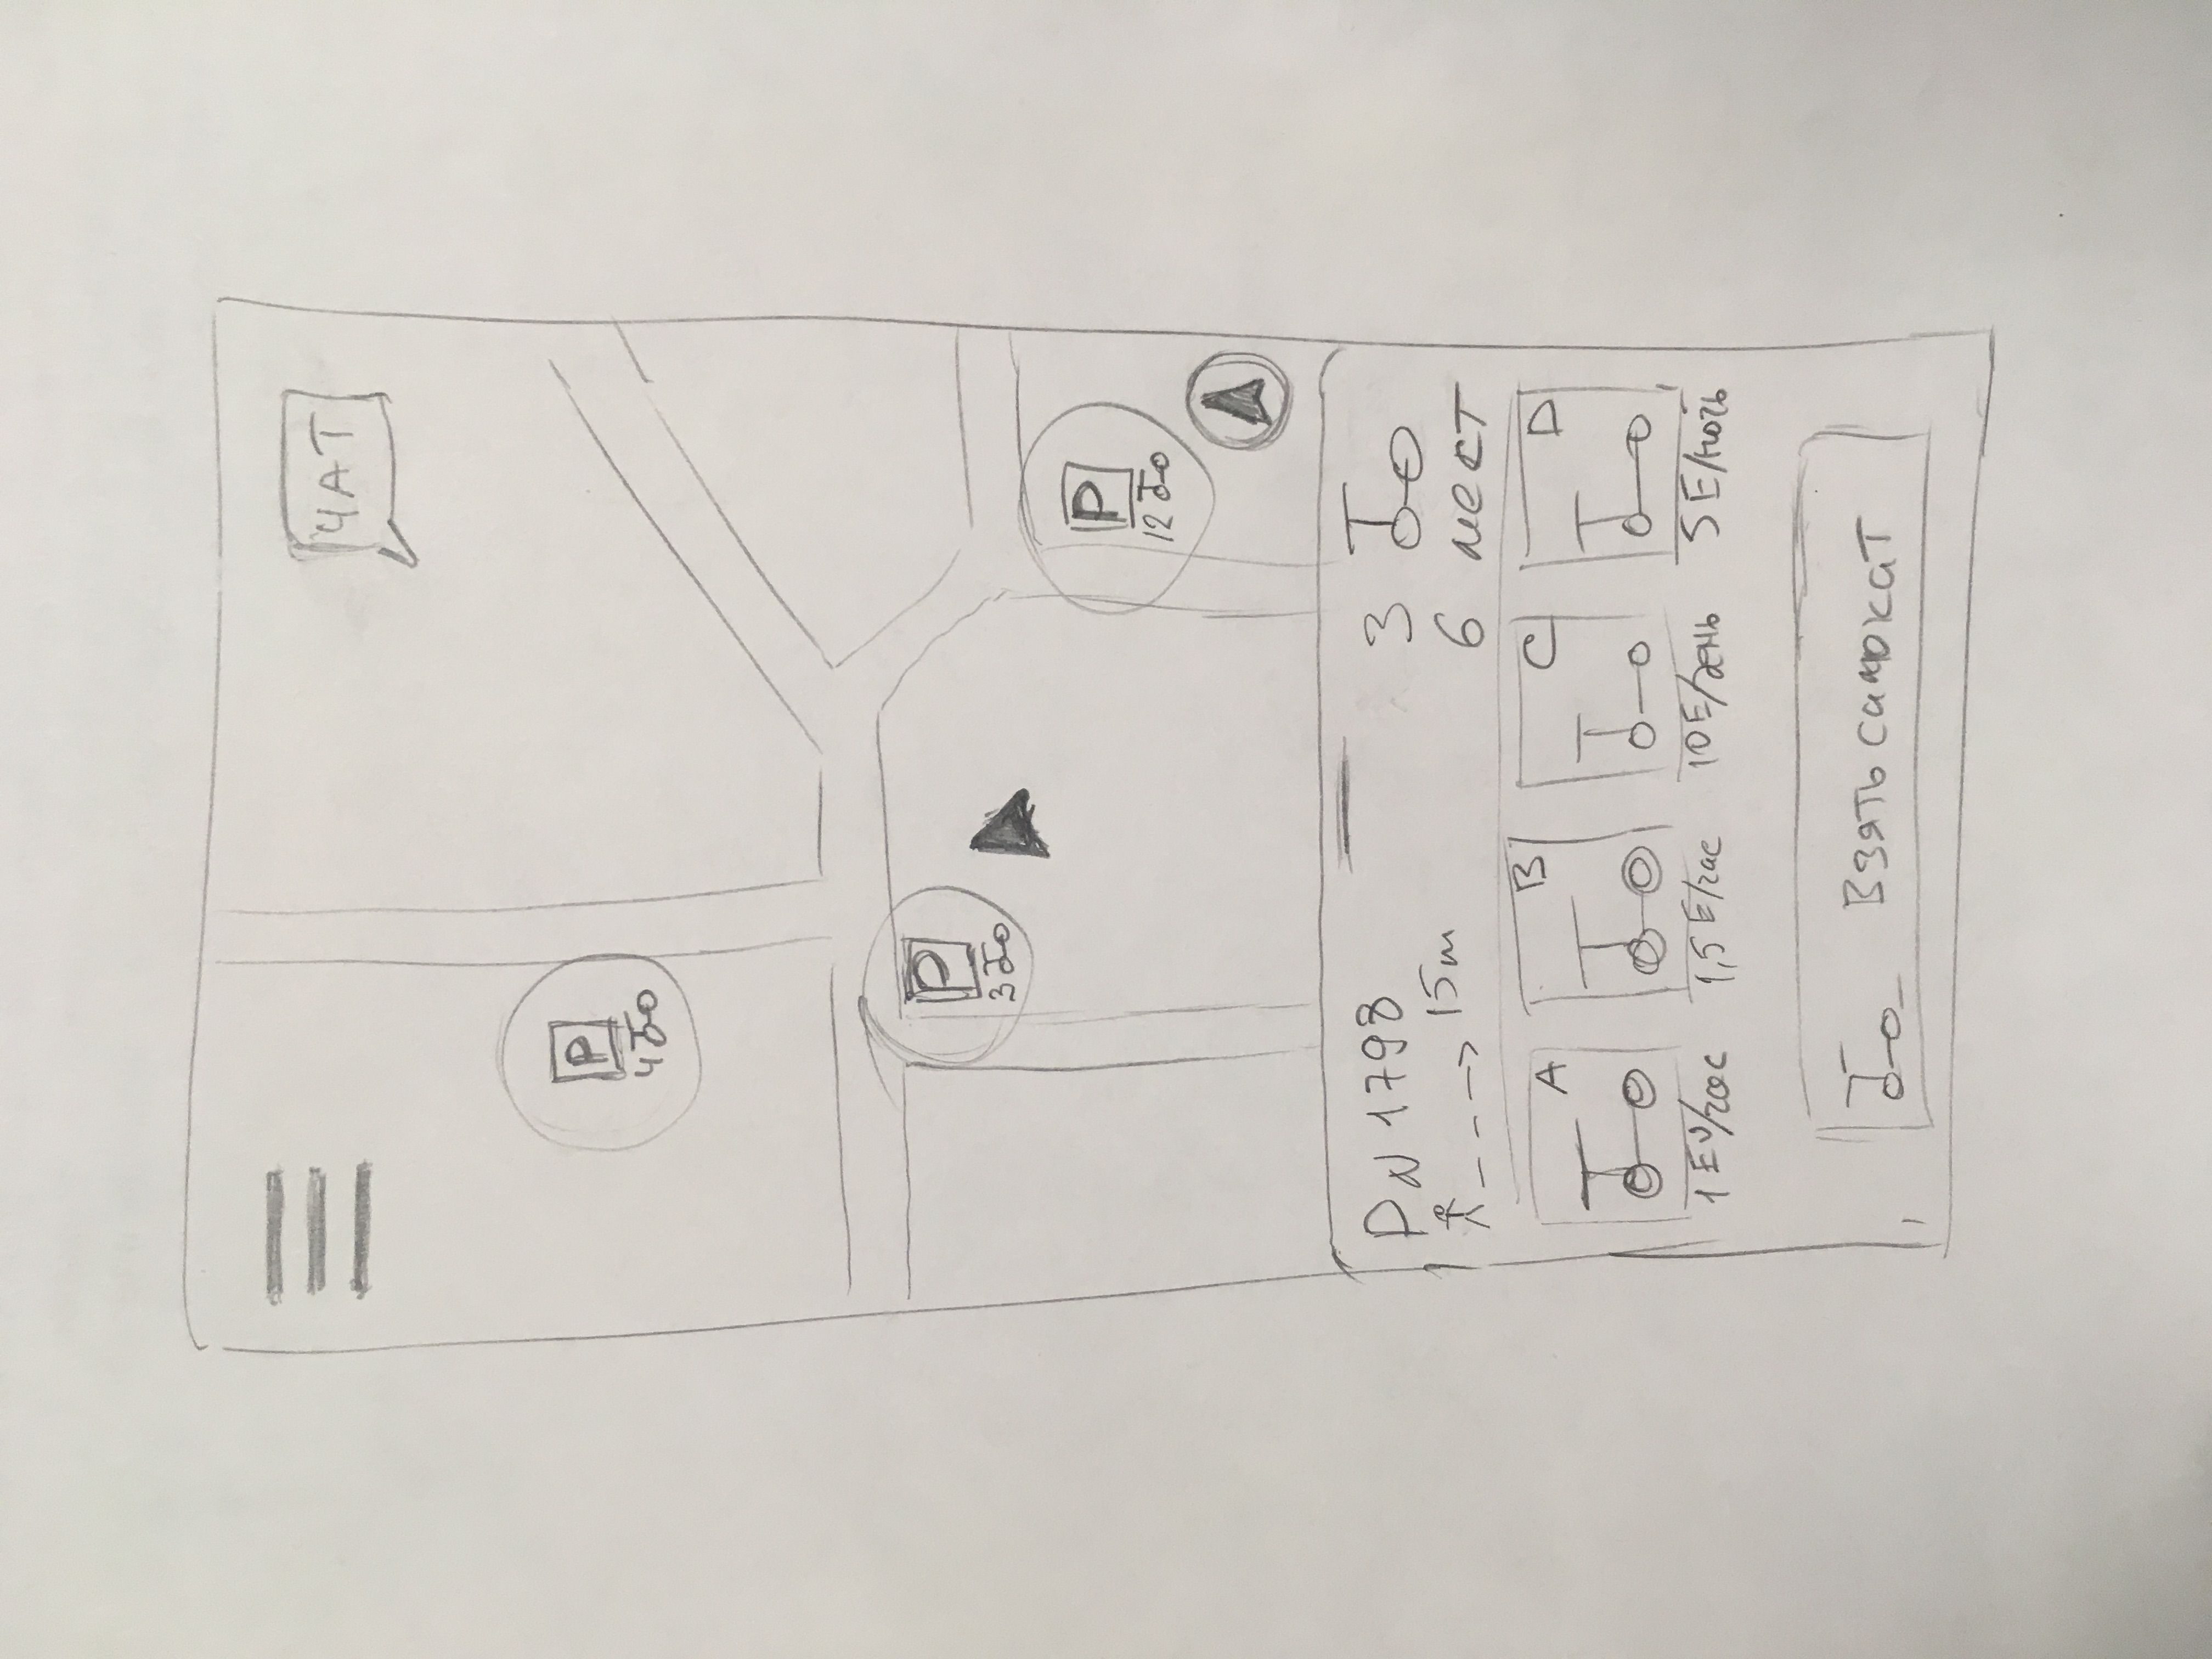 ЧАТ
P
4
P
3
P
12
P N 1798
3
15m
6 мест
A
B
C
D
1 EU/час
1,5 E/час
10 E/день
5 E/ночь
Взять самокат